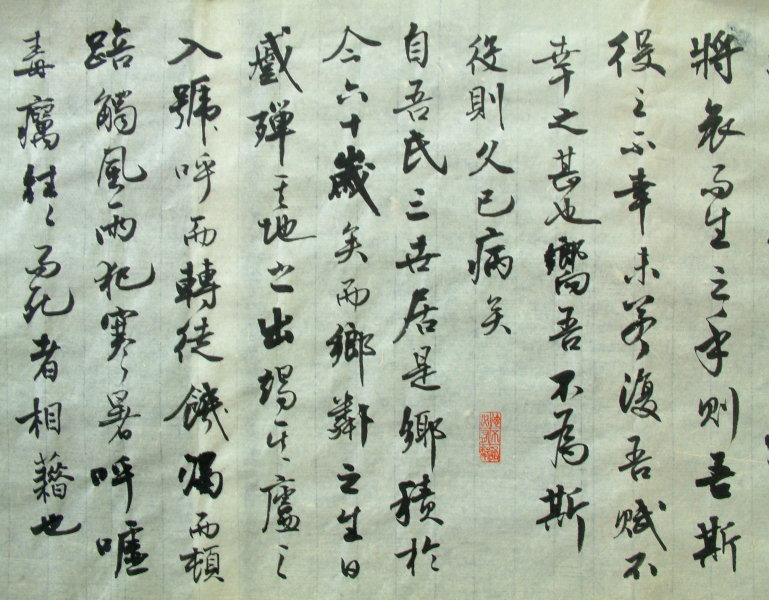 將哀而生之乎則吾斯
役之不幸未若復吾賦不
幸之甚也嚮吾不為斯
役則久已病矣
自吾氏三世居是鄉積於
今六十歲矣而鄉鄰之生日
蹙殫其地之出竭其廬之
入號呼而轉徙饑渴而頓
踣觸風雨犯寒暑呼噓
毒癘往〻而死者相藉也